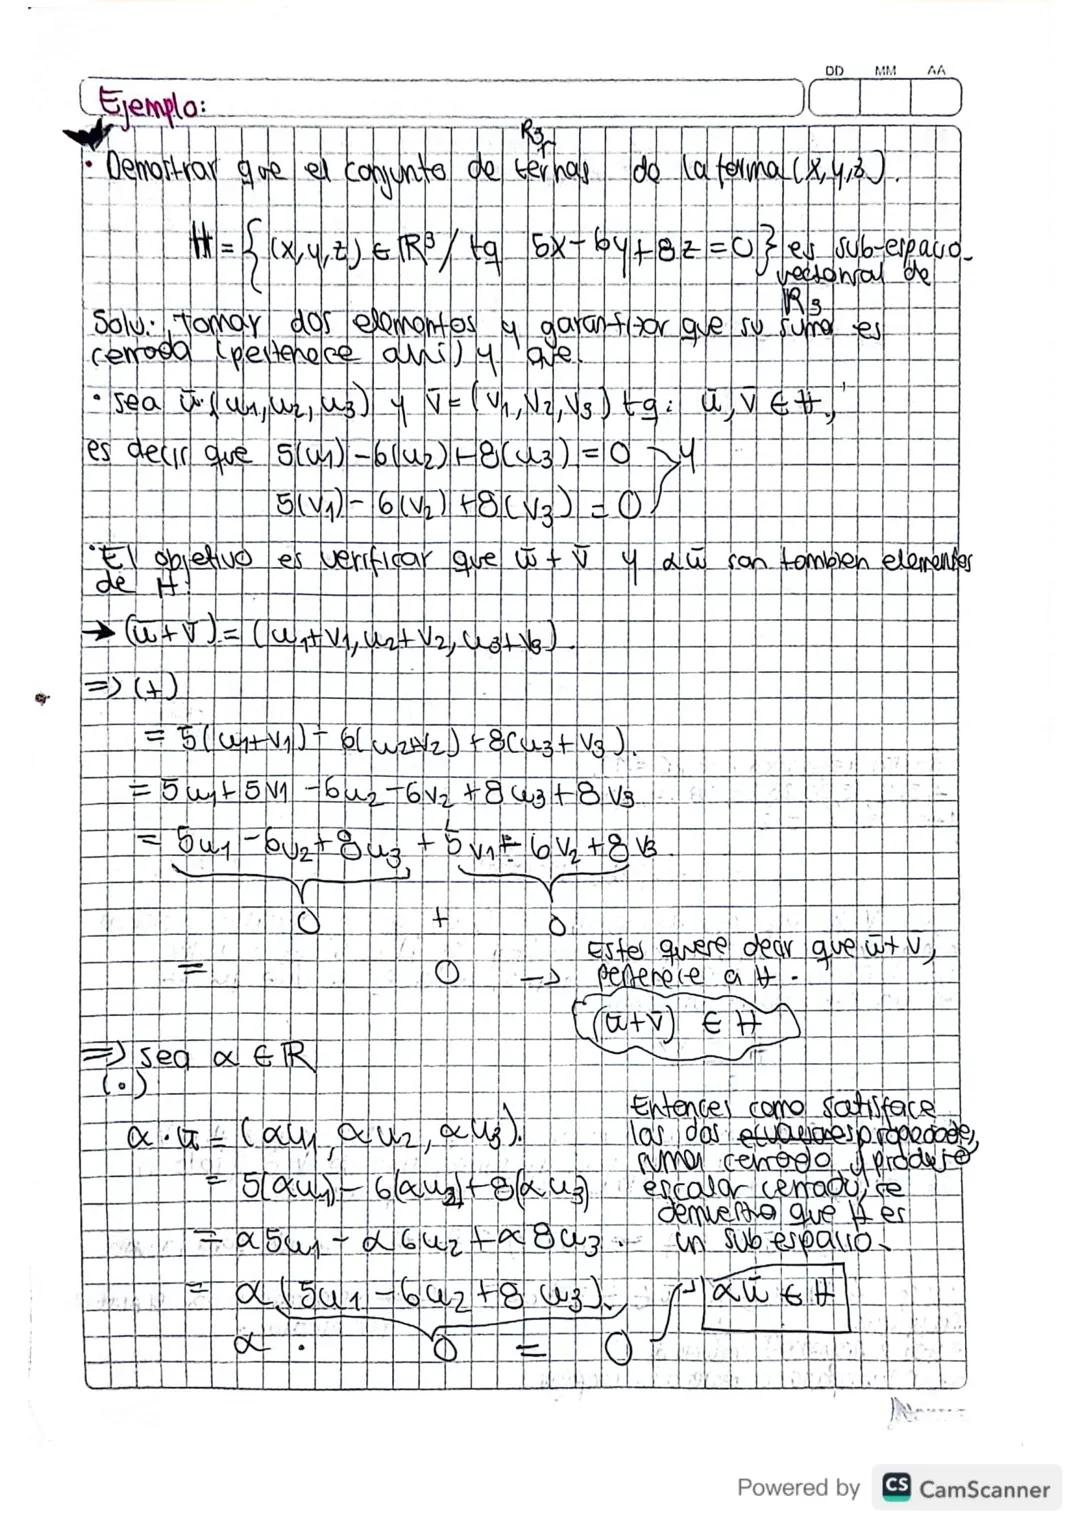 DD MM AA
Ejemplo:
R3
• Demostrar que el conjunto de ternas de la forma (x,y,z).
H = { (x,y,z) ∈ R³ / tq 5x - 6y + 8z = 0 } es sub-espacio
vectorial de
R3
Solu: Tomar dos elementos y garantizar que su suma es
cerrada (pertenece ahí) y que.
• sea ū = (u1, u2, u3) y v̄ = (v1, v2, v3) tq: ū, v̄ ∈ H,
es decir que 5(u1) - 6(u2) + 8(u3) = 0 y
5(v1) - 6(v2) + 8(v3) = 0
• El objetivo es verificar que ū + v̄ y αū son tambien elementos
de H:
→ (ū + v̄) = (u1+v1, u2+v2, u3+v3).
=> (+)
= 5(u1+v1) - 6(u2+v2) + 8(u3+v3).
= 5u1 + 5v1 - 6u2 - 6v2 + 8u3 + 8v3
= 5u1 - 6u2 + 8u3 + 5v1 - 6v2 + 8v3.
0 + 0
= 0 →
Esto quiere decir que ū + v̄,
pertenece a H.
(ū + v̄) ∈ H
=> sea α ∈ R
(•)
α · ū = (αu1, αu2, αu3).
= 5(αu1) - 6(αu2) + 8(αu3)
= α5u1 - α6u2 + α8u3.
= α(5u1 - 6u2 + 8u3).
α · 0 = 0
Entonces como satisface
las dos ecuaciones propiedades,
suma cerrado y producto
escalar cerrado, se
demuestra que H es
un sub espacio.
αū ∈ H
Powered by CS CamScanner